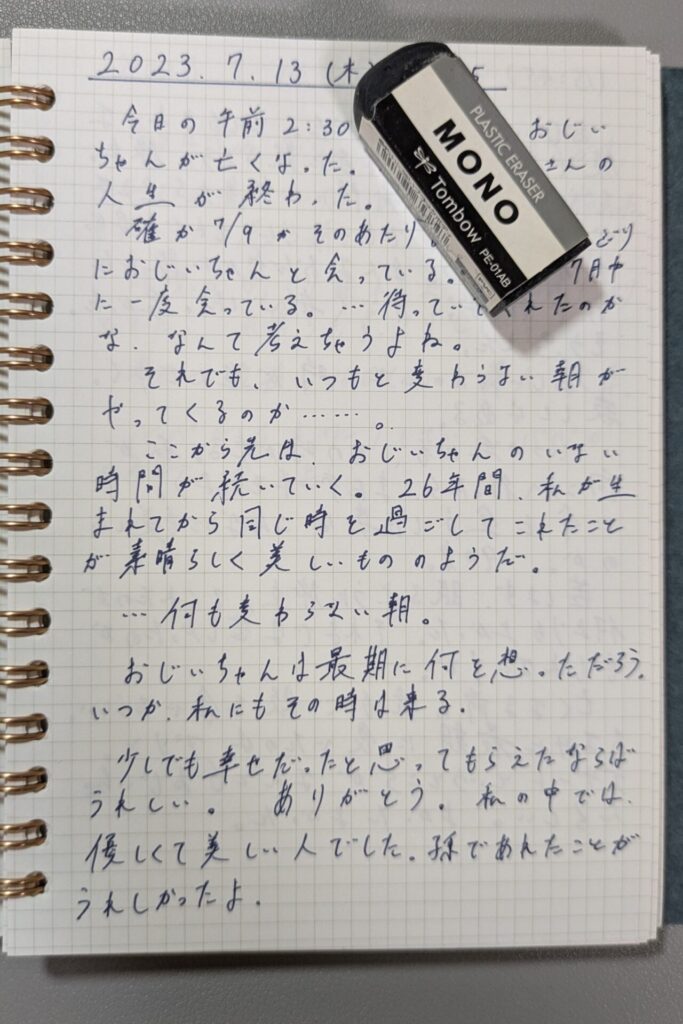 2023.7.13(木) 5
今日の午前2:30 おじい
ちゃんが亡くなった。 さんの
人生が終わった。
確か7/9かそのあたり
におじいちゃんと会っている。 7月中
に一度会っている。…待っていてくれたのか
な、なんて考えちゃうよね。
それでも、いつもと変わらない朝が
やってくるのか……。
ここから先は、おじいちゃんのいない
時間が続いていく。26年間、私が生
まれてから同じ時を過ごしてこれたこと
が素晴らしく美しいもののようだ。
…何も変わらない朝。
おじいちゃんは最期に何を想っただろう。
いつか、私にもその時は来る。
少しでも幸せだったと思ってもらえたならば
うれしい。 ありがとう。私の中では、
優しくて美しい人でした。孫であれたことが
うれしかったよ。
PLASTIC ERASER
MONO
Tombow PE-01AB